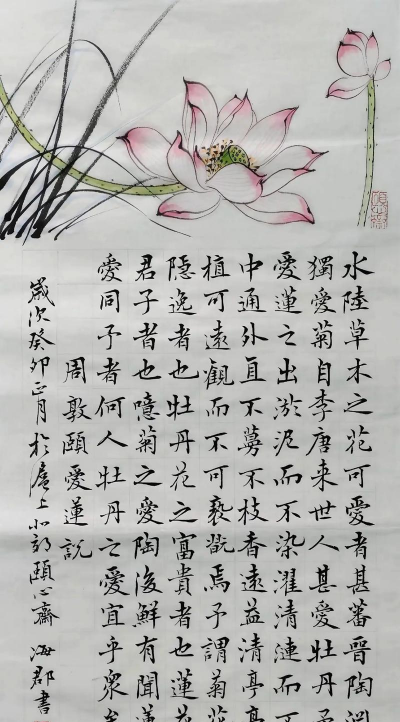 水陸草木之花可愛者甚蕃晉陶淵
獨愛菊自李唐来世人甚愛牡丹予
愛蓮之出淤泥而不染濯清漣而不
中通外直不蔓不枝香遠益清亭亭
植可遠觀而不可褻翫焉予謂菊花
隱逸者也牡丹花之富貴者也蓮花
君子者也噫菊之愛陶後鮮有聞蓮
愛同予者何人牡丹之愛宜乎衆矣
周敦頤愛蓮說
歲次癸卯正月於滬上北郊頤心齋 海郡書